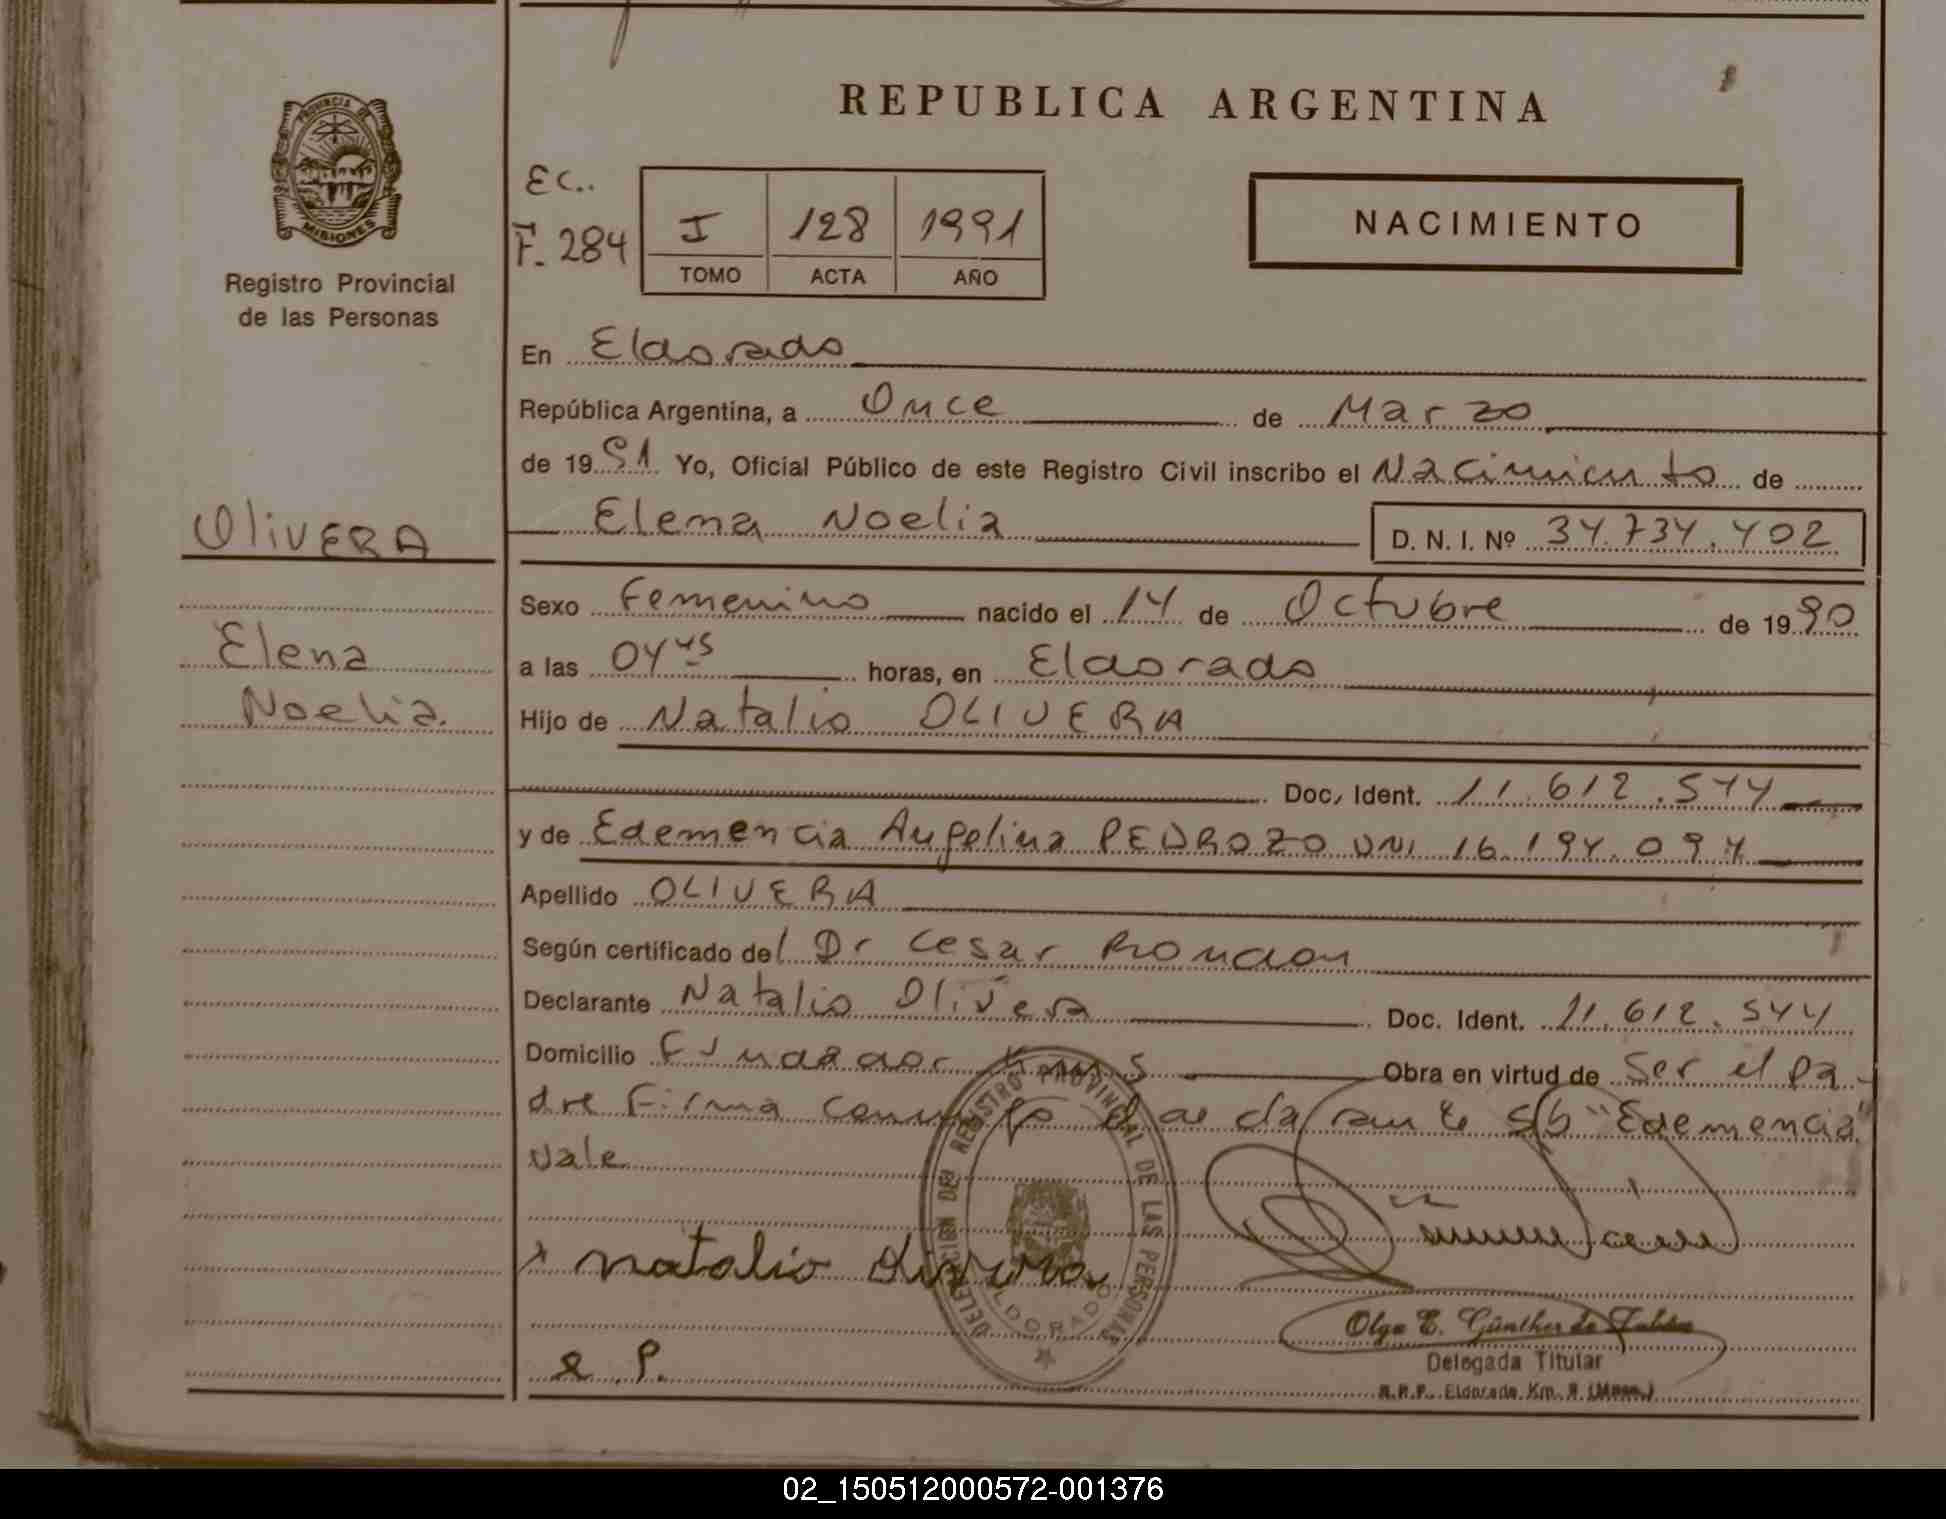 REPUBLICA ARGENTINA
PROVINCIA DE MISIONES
Registro Provincial
de las Personas
EC..
F. 284
I 128 1991
TOMO ACTA AÑO
NACIMIENTO
En Eldorado
República Argentina, a Once de Marzo
de 1991 Yo, Oficial Público de este Registro Civil inscribo el Nacimiento de
Elena Noelia D. N. I. Nº 34.734.402
OliVERA
Elena
Noelia.
Sexo Femenino nacido el 14 de Octubre de 1990
a las 04 45 horas, en Eldorado
Hijo de Natalio OLIVERA
Doc. Ident. 11.612.544
y de Edemencia Angelina PEDROZO DNI 16.194.094
Apellido OLIVERA
Según certificado del Dr Cesar Rondon
Declarante Natalio Olivera Doc. Ident. 11.612.544
Domicilio Fundador Km 5 Obra en virtud de Ser el pa-
dre Firma conmigo declarante s/b "Edemencia"
Vale
natalio olivera
DELEGACION DEL REGISTRO PROVINCIAL DE LAS PERSONAS
ELDORADO
Olga E. Günther de
Delegada Titular
R.P.P. Eldorado, Km. 9 (Mnes.)
e P.
02_150512000572-001376